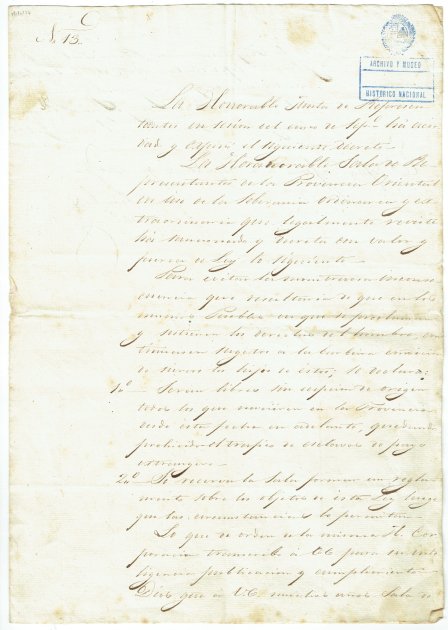 N. 13.
ARCHIVO Y MUSEO
HISTORICO NACIONAL
La Honorable Sala de Represen
tantes en sesion del cinco de Sepe ha acor
dado y expedido el siguiente decreto
La Honorable Sala de Re
presentantes de la Provincia Oriental
en uso de la Soberania ordinaria y ex
traordinaria que legalmente reviste
ha sancionado y decreta con valor y
fuerza de Ley lo siguiente
Para evitar la monstruosa inconse
cuencia que resultaria de que en los
mismos Pueblos en que se proclaman
y sostienen los derechos del hombre, con
tinuasen sugetos a la barbara condicion
de siervos los hijos de estos, se declara:
1o Seran libres sin de origen
todos los que nacieren en la Provincia
desde esta fecha en adelante, quedando
prohivido el trafico de esclavos de pays
extrangero
2o Se reserva la Sala formar un regla
mento sobre los objetos de esta Ley luego
que las circunstancias lo permitan
Lo que de orden de la misma H. Cor
poracion transcribo á VE para su inte
ligencia publicacion y cumplimiento
Dios gue a V.E. muchos años Sala de